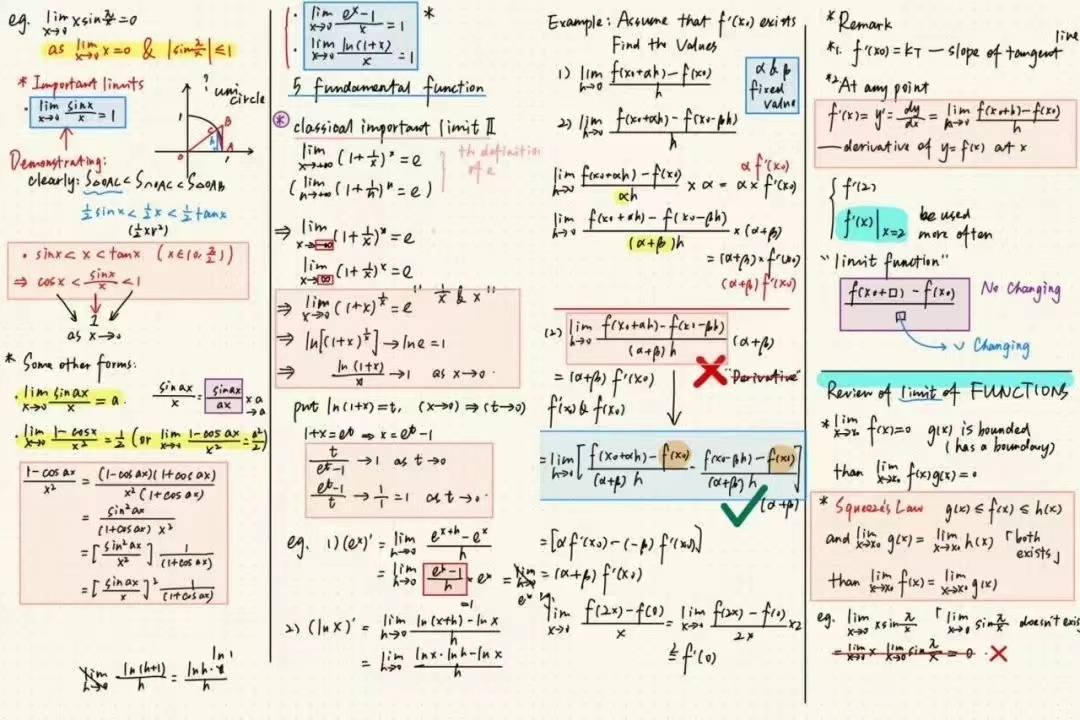 eg. lim x→0 xsin π/x = 0
as lim x→0 x=0 & |sin π/x| ≤ 1
* Important limits
· lim x→0 sinx/x = 1
? unit circle
1
C
B
h
0
1
A
Demonstrating:
clearly: S△OAC < S∩OAC < S△OAB
½sinx < ½x < ½tanx
(½xr²)
· sinx < x < tanx (x∈(0, π/2))
⇒ cosx < sinx/x < 1
1
as x→0
* Some other forms:
· lim x→0 sinax/x = a.
sinax/x = sinax/ax ×a →a
· lim x→0 1-cosx/x² = 1/2 (or lim x→0 1-cosax/x² = a²/2)
1-cosax/x² = (1-cosax)(1+cosax)/x²(1+cosax)
= sin²ax/(1+cosax)x²
= [sin²ax/x²] 1/(1+cosax)
= [sinax/x]² 1/(1+cosax)
lim h→0 ln(h+1)/h = lnh·x/h
ln'
· lim x→0 eˣ-1/x = 1 *
· lim x→0 ln(1+x)/x = 1
5 fundamental function
* classical important limit II
lim x→+∞ (1+1/x)ˣ = e
(lim n→+∞ (1+1/n)ⁿ = e)
th definition of e
⇒ lim x→-∞ (1+1/x)ˣ = e
lim x→∞ (1+1/x)ˣ = e
⇒ lim x→0 (1+x)^1/x = e "1/x & x"
⇒ ln[(1+x)^1/x] → lne = 1
⇒ ln(1+x)/x → 1 as x→0.
put ln(1+x)=t, (x→0) ⇒ (t→0)
1+x=eᵗ ⇒ x=eᵗ-1
t/eᵗ-1 → 1 as t→0
eᵗ-1/t → 1/1 = 1 as t→0.
eg. 1) (eˣ)' = lim h→0 eˣ⁺ʰ-eˣ/h
= lim h→0 eʰ-1/h · eˣ = lim h→0 eˣ
=1
2) (lnx)' = lim h→0 ln(x+h)-lnx/h
= lim h→0 lnx·lnh-lnx/h
Example: Assume that f'(x₀) exists
Find the Values
1) lim h→0 f(x₀+αh)-f(x₀)/h
α & β fixed value
2) lim h→0 f(x₀+αh)-f(x₀-βh)/h
α f'(x₀)
lim h→0 f(x₀+αh)-f(x₀)/αh × α = α × f'(x₀)
lim h→0 f(x₀+αh)-f(x₀-βh)/(α+β)h × (α+β)
= (α+β)×f'(x₀)
(α+β)f'(x₀)
(2) lim h→0 f(x₀+αh)-f(x₀-βh)/(α+β)h (α+β)
= (α+β) f'(x₀)
"Derivative"
f'(x) & f(x₀)
= lim h→0 [f(x₀+αh)-f(x₀)/(α+β)h - f(x₀-βh)-f(x₀)/(α+β)h]
(α+β)
= [αf'(x₀)-(-β)f'(x₀)]
= (α+β) f'(x₀)
lim x→0 f(2x)-f(0)/x = lim x→0 f(2x)-f(0)/2x ×2
= f'(0)
*Remark
*1. f'(x₀)=kT — slope of tangent line
*2 At any point
f'(x)=y'=dy/dx= lim h→0 f(x+h)-f(x₀)/h
— derivative of y=f(x) at x
f'(2)
f'(x)|x=2 be used more often
"limit function"
f(x₀+□)-f(x₀)/□ No changing
v Changing
Review of limit of FUNCTIONS
* lim x→x₀ f(x)=0 g(x) is bounded
(has a boundary)
than lim x→x₀ f(x)g(x)=0
* Squeeze's Law g(x) ≤ f(x) ≤ h(x)
and lim x→x₀ g(x) = lim x→x₀ h(x) 「both exists」
than lim x→x₀ f(x) = lim x→x₀ g(x)
eg. lim x→0 xsin π/x 「lim x→0 sin π/x doesn't exis
= lim x→0 x lim x→0 sin π/x = 0 · ×